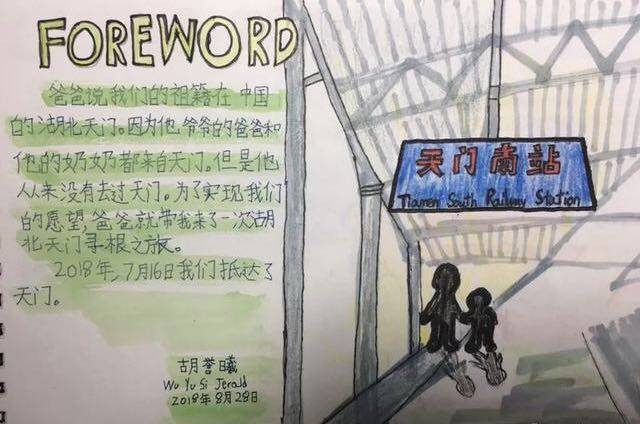 FOREWORD
爸爸说我们的祖籍在中国
的湖北天门。因为他爷爷的爸爸和
他的奶奶都来自天门。但是他
从来没有去过天门。为了实现我们
的愿望,爸爸就带我来了一次湖
北天门寻根之旅。
2018年,7月16日我们抵达了
天门。
胡誉曦
Wu Yu Si Jerald
2018年8月28日
天门南站
Tianmen South Railway Station